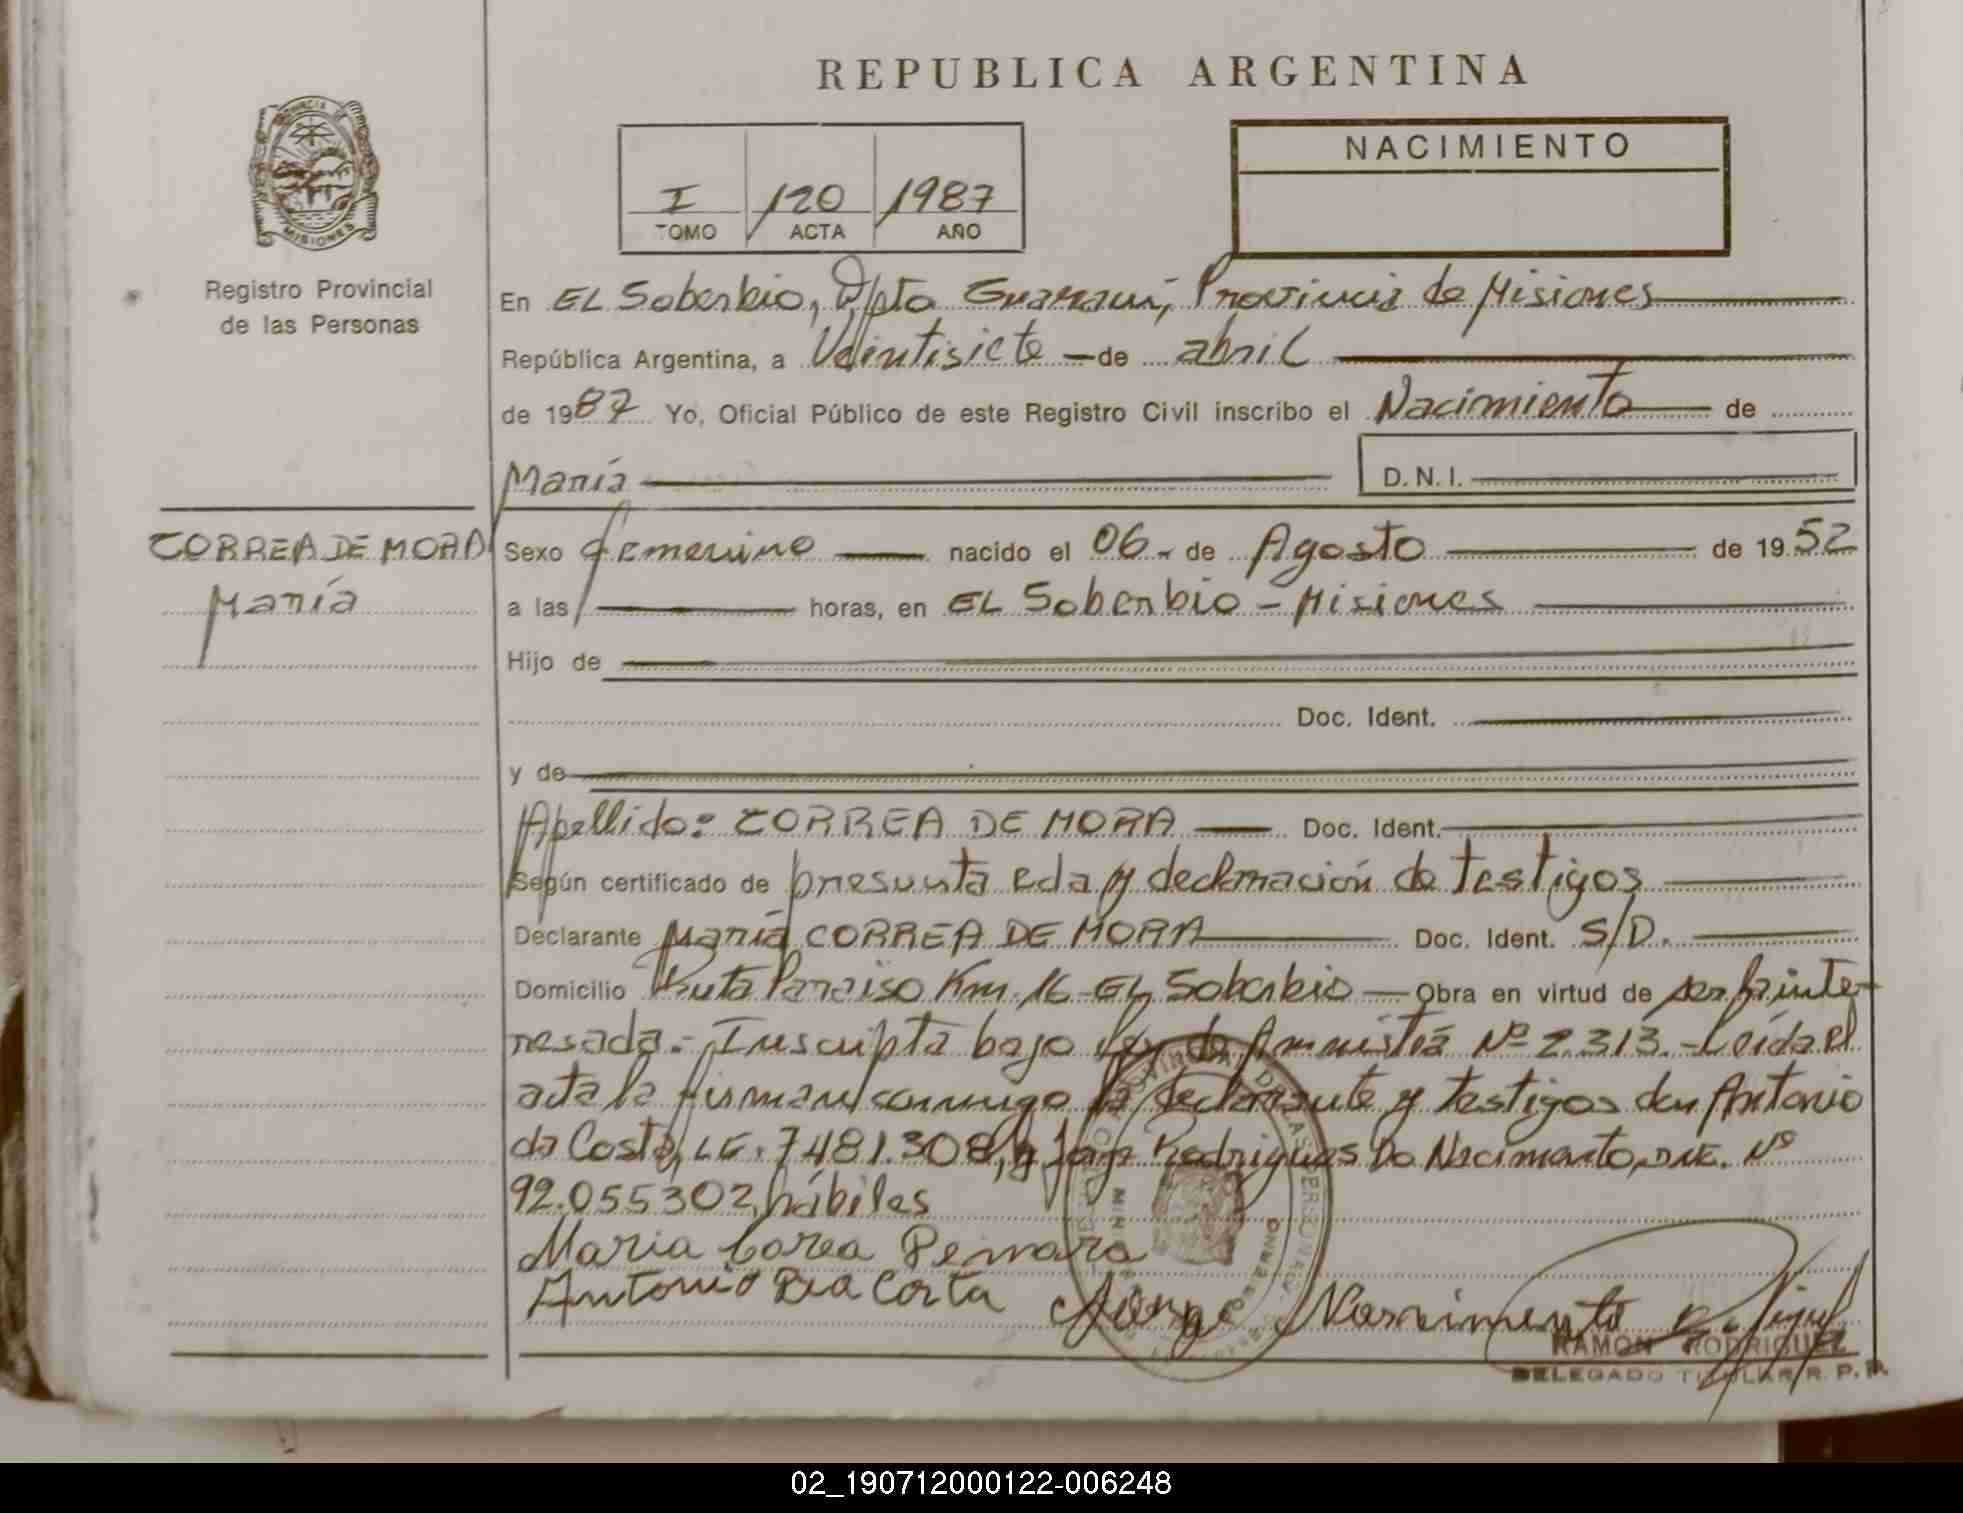 REPUBLICA ARGENTINA
PROVINCIA
MISIONES
Registro Provincial
de las Personas
I 120 1987
TOMO ACTA AÑO
NACIMIENTO
En EL Soberbio, Dpto Guaraní, Provincia de Misiones
República Argentina, a Veintisiete de abril
de 1987 Yo, Oficial Público de este Registro Civil inscribo el Nacimiento de
María D.N.I.
CORREA DE MORA
María
Sexo femenino nacido el 06 de Agosto de 1952
a las horas, en EL Soberbio - Misiones
Hijo de
Doc. Ident.
y de
Apellido: CORREA DE MORA Doc. Ident.
Según certificado de presunta eda y declaración de testigos
Declarante María CORREA DE MORA Doc. Ident. S/D.
Domicilio Ruta Paraiso Km. 16 - EL Soberbio Obra en virtud de ser la inte-
resada.- Inscripta bajo Ley de Amnistía Nº 2.313.- Leída el
acta la firman conmigo la declarante y testigos don Antonio
da Costa, LE. 7481.308, y Jorge Rodrigues Do Nacimento, DNI. Nº
92.055302, hábiles
Maria Corea Demora
Antonio Da Costa Jorge Nascimento
RAMON RODRIGUEZ
DELEGADO TITULAR R. P. P.
02_190712000122-006248